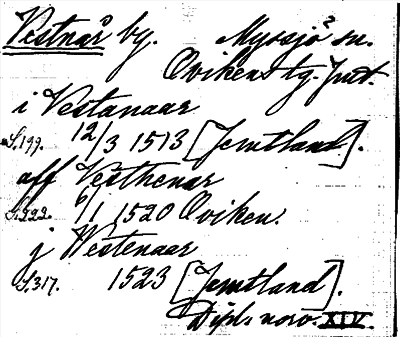 Vestnår by. Myssjö sn.
Ovikens tg. Jmt.
i Vestanaar
S.199. 12/3 1513 [Jemtland].
aff Vesthenar
S.222. 6/1 1520 Oviken.
j Westenaar
S.317. 1523 [Jemtland].
Dipl. norv. XIV.